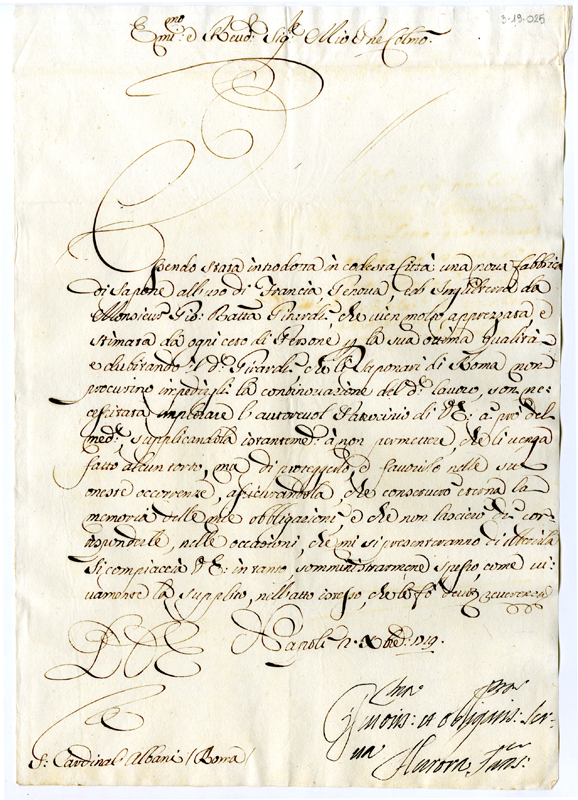 3-19-025
Em.mo e Rev.mo Sig.re Mio P.ne Colmo.
Essendo stata introdotta in codesta Città una nova fabbica
di Sapone all'uso di Francia Genova, ed Inghilterra da
Monsieur Gio: Batta Girardi, che vien molto apprezzata e
stimata da ogni ceto di Persone p la sua ottima qualità
e dubitando il d.o Girardi che li Saponari di Roma non
procurino impedirgli la continovazione del d.o lavoro, son ne-
cessitata implorare l'autorevol Patrocinio di V.E: a prò del
med.o, supplicandola a non permettere, che li venga
fatto alcun torto, ma di proteggerlo, e favorirlo nelle sue
oneste occorrenze, assicurandola, che conserverò eterna la
memoria delle mie obbligazioni, e che non lascierò di cor-
risponderle, nelle occasioni, che mi si presenteranno di servirla
Si compiaccia V.E: in tanto somministrarmene spesso, come vi-
vamente la supplico, nell'atto istesso, che le fò dev.a reverenza
D V E
Napoli 1719.
obligatis: Ser-
va
Aurora
S.r Cardinal Albani (Roma)